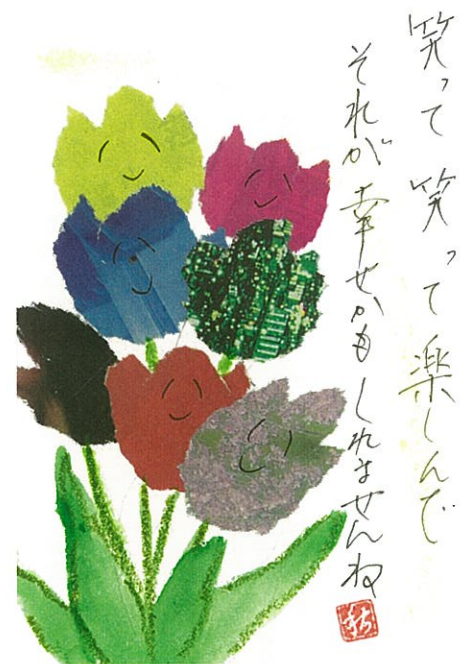 笑って笑って楽しんで
それが幸せかもしれませんね